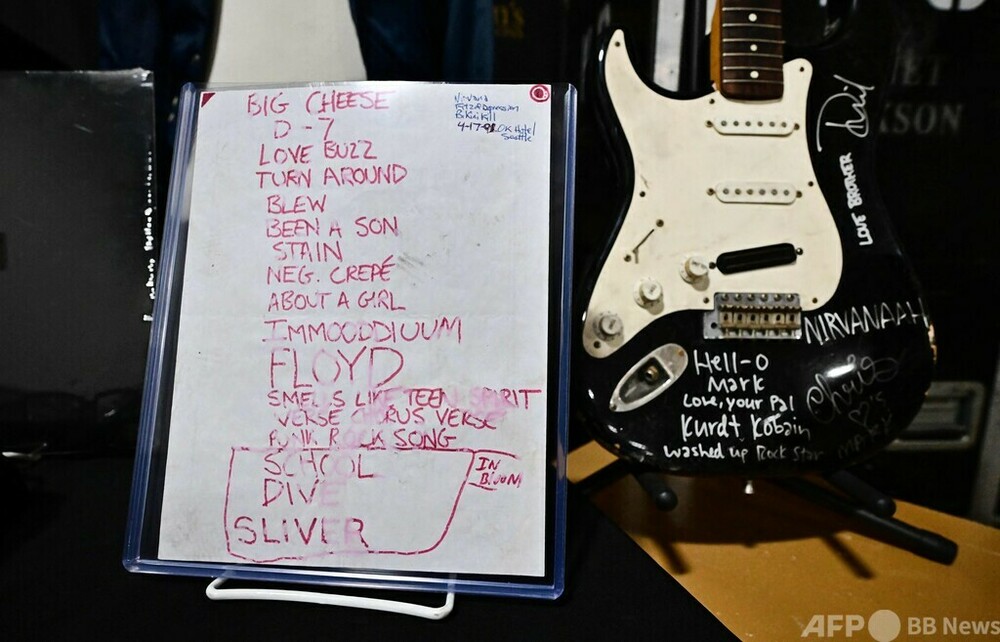 BIG CHEESE
D-7
LOVE BUZZ
TURN AROUND
BLEW
BEEN A SON
STAIN
NEG. CREPÉ
ABOUT A GIRL
IMMOODDIUUM
FLOYD
SMELLS LIKE TEEN SPIRIT
VERSE CHORUS VERSE
PUNK ROCK SONG
SCHOOL
DIVE
SLIVER
IN
BLOOM
Nirvana
Bikini Kill
4-17-91 OK Hotel
Seattle
LOVE BROTHER David
NIRVANAAH
Hell-O
Mark
Love, your Pal
Kurdt Kobain
washed up Rock Star
Chris
KSON
AFP BB News